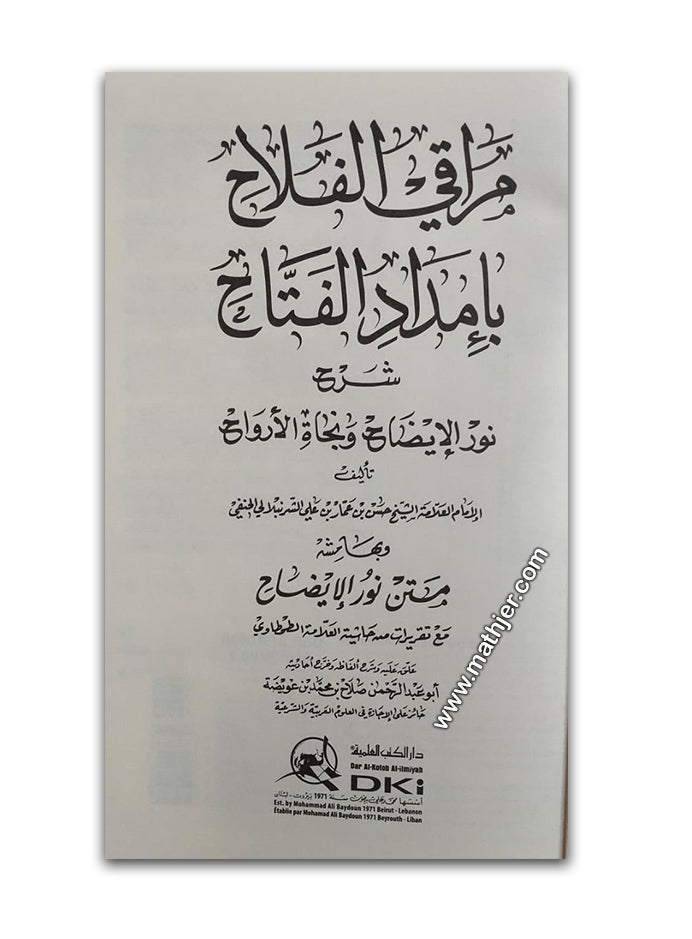 مَراقي الفَلاحِ
بإمدَادِ الفَتَّاحِ
شرح
نور الإيضاح ونجاة الأرواح
تأليف
الإمام العلامة الشيخ حسن بن عمار بن علي الشرنبلالي الحنفي
وبهامشه
متن نور الإيضاح
مع تقريرات من حاشية العلامة الطحطاوي
علق عليه وشرح ألفاظه وخرج أحاديثه
أبو عبد الرحمن صلاح بن محمد بن عويضة
حائز على الإجازة في العلوم العربية والشرعية
www.mathjer.com
دار الكتب العلمية
Dar Al-Kotob Al-ilmiyah
DKi
أسسها محمد علي بيضون سنة 1971 بيروت - لبنان
Est. by Mohammad Ali Baydoun 1971 Beirut - Lebanon
Établie par Mohamad Ali Baydoun 1971 Beyrouth - Liban